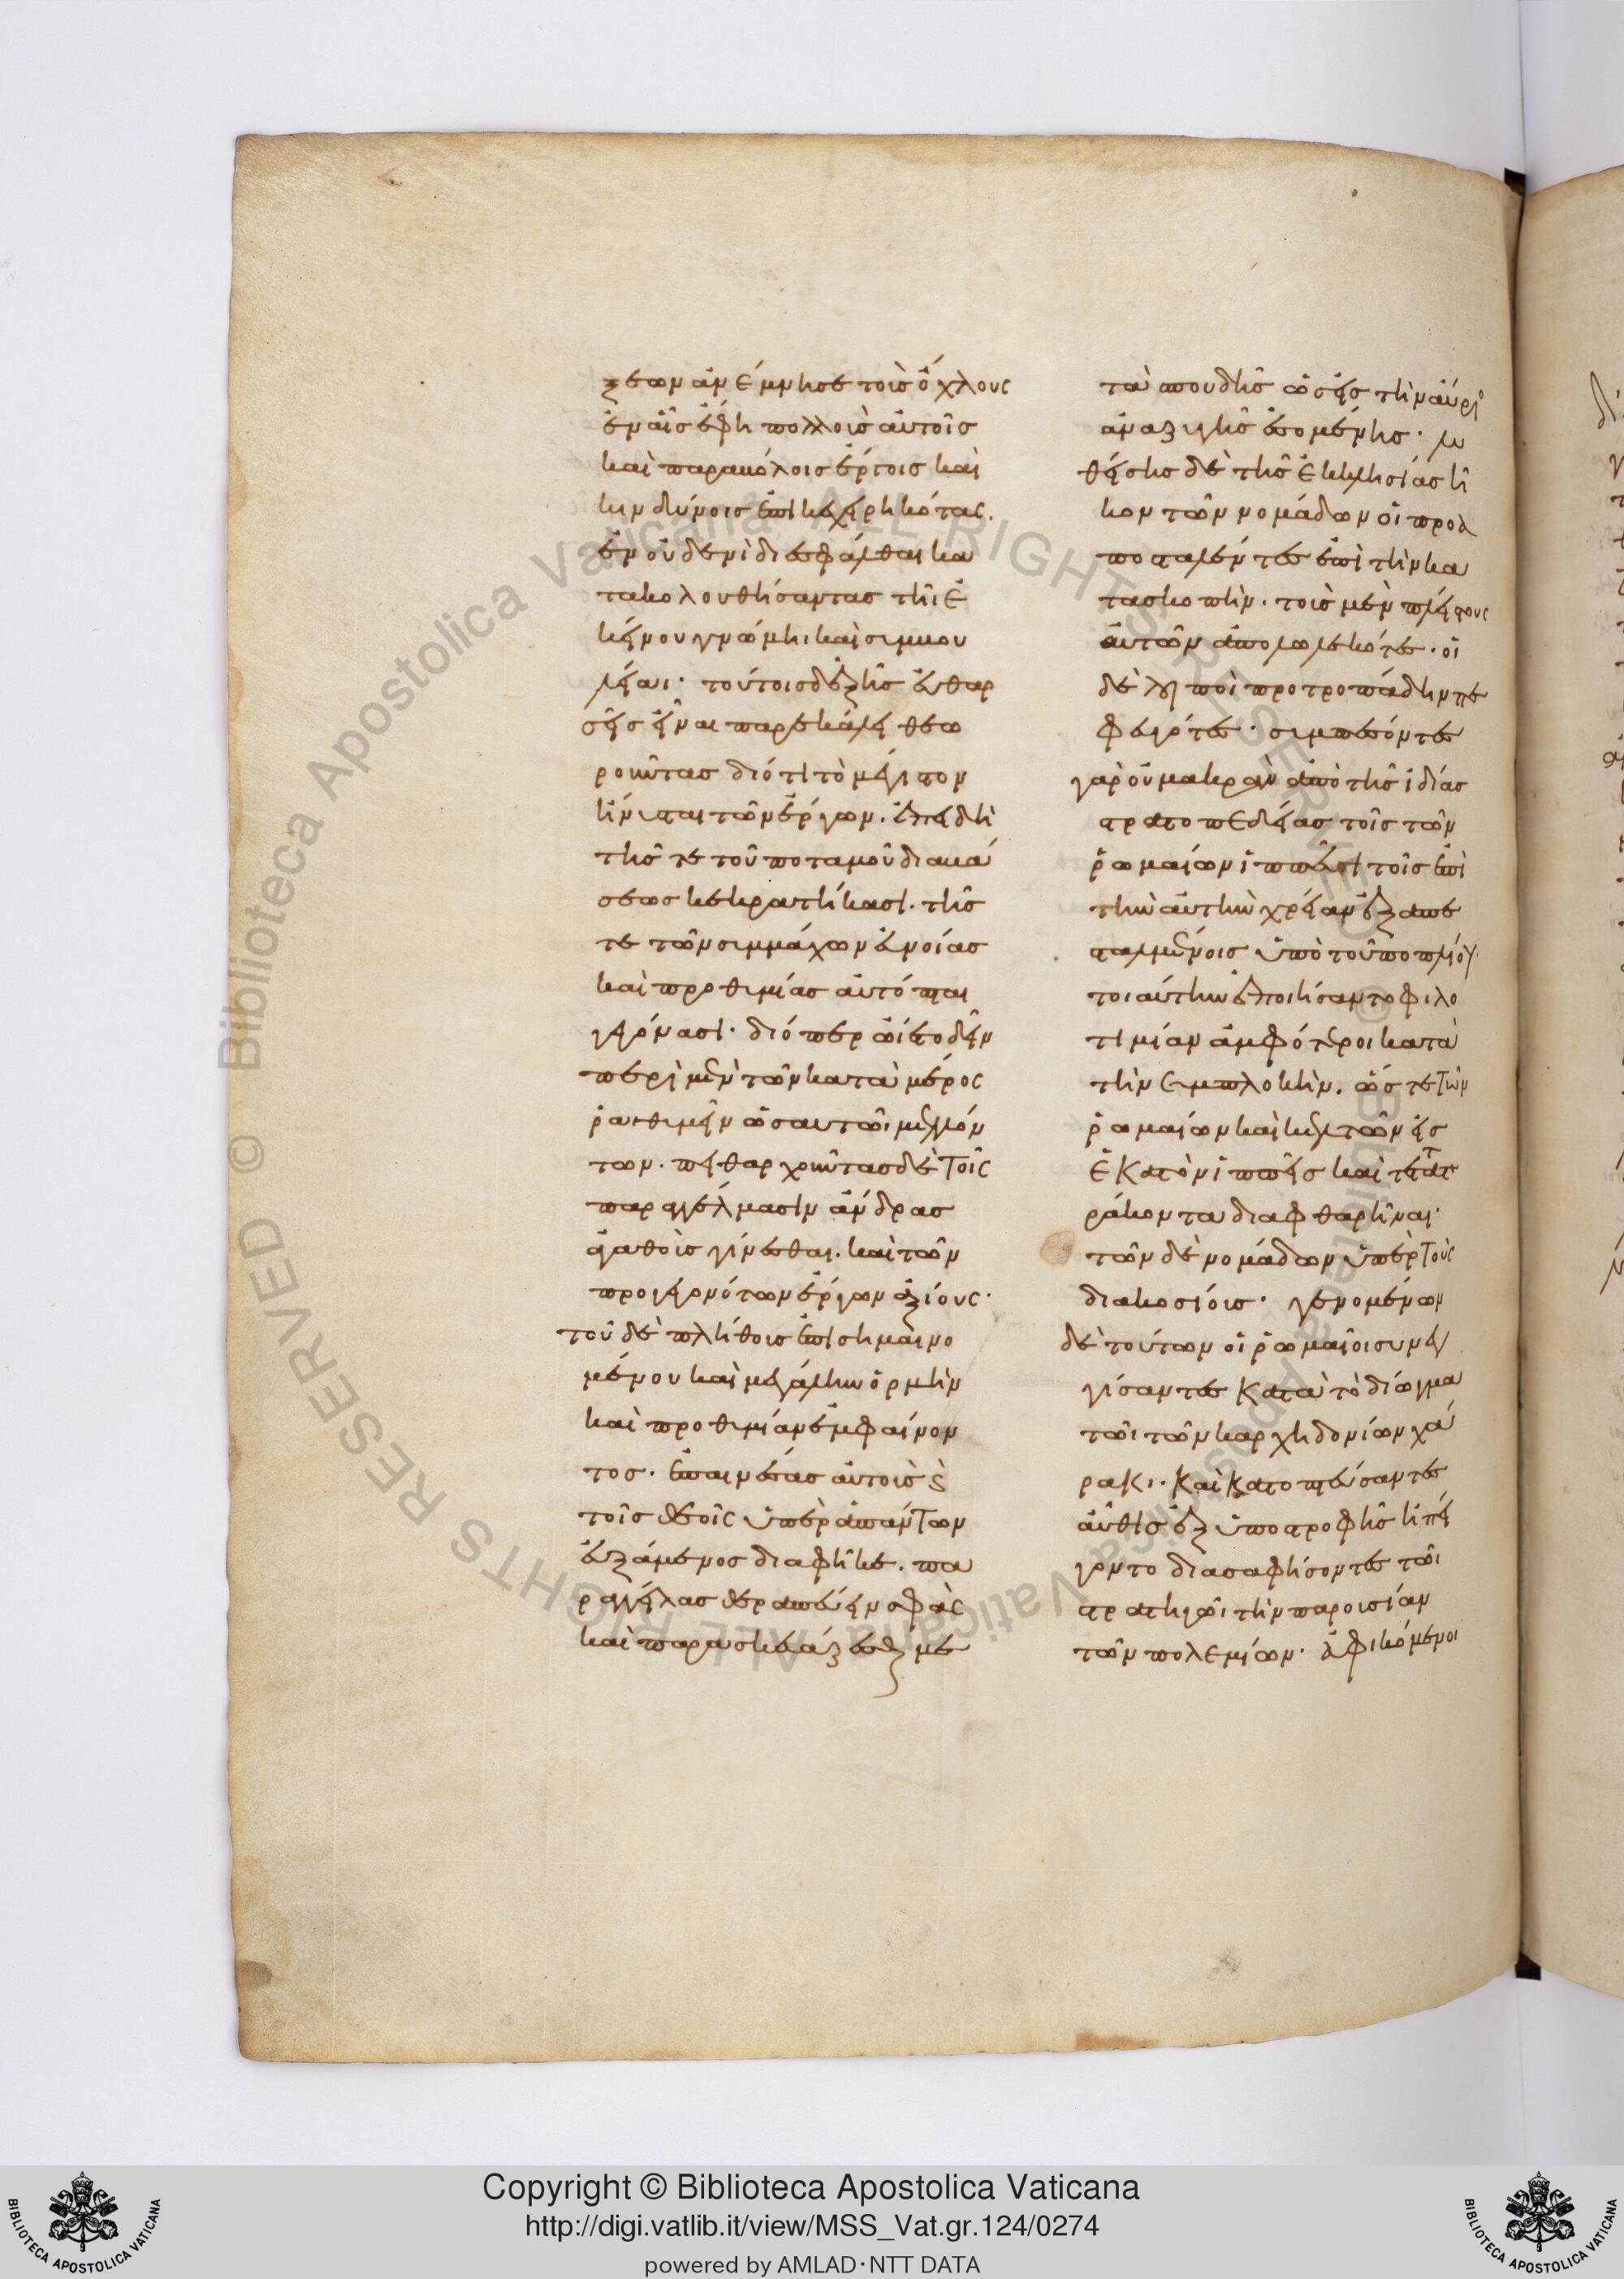 ξεων ἀνέμνησε τοὺς ὄχλους
ἐν αἷς ἔφη πολλοῖς αὐτοὺς
καὶ παραβόλοις ἔργοις καὶ
κινδύνοις ἐπικεχειρηκότας.
ἐν οὐδενὶ διεσφάλθαι κα
τακολουθήσαντας τῆι ἐ
κείνου γνώμηι καὶ συμβου
λείαι· τούτοις δ' ἑξῆς εὐθαρ
σεῖς εἶναι παρεκάλει θεω
ροῦντας διότι τὸ μέγιστον
ἤνυσται τῶν ἔργων. ἐπειδὴ
τῆς τε τοῦ ποταμοῦ διαβά
σεως κεκρατήκασι. τῆς
τε τῶν συμμάχων εὐνοίας
καὶ προθυμίας αὐτόπται
γεγόνασι· διόπερ ὤιετο δεῖν
περὶ μὲν τῶν κατὰ μέρος
ῥαθυμεῖν ὡς αὐτῶι μελόν
των. πειθαρχοῦντας δὲ τοῖς
παραγγέλμασιν ἄνδρας
ἀγαθοὺς γίνεσθαι. καὶ τῶν
προγεγονότων ἔργων ἀξίους·
τοῦ δὲ πλήθους ἐπισημαινο
μένου καὶ μεγάλην ὁρμὴν
καὶ προθυμίαν ἐμφαίνον
τος. ἐπαινέσας αὐτοὺς καὶ
τοῖς θεοῖς ὑπὲρ ἁπάντων
εὐξάμενος διαφῆκε. πα
ραγγείλας θεραπεύειν σφᾶς
καὶ παρασκευάζεσθαι με
τὰ σπουδῆς ὡς εἰς τὴν αὔριον
ἀναζυγῆς ἐσομένης. λυ
θείσης δὲ τῆς ἐκκλησίας ἧ
κον τῶν νομάδων οἱ προα
ποσταλέντες ἐπὶ τὴν κα
τασκοπὴν. τοὺς μὲν πλείστους
αὐτῶν ἀπολωλεκότες. οἱ
δὲ λοιποὶ προτροπάδην πε
φευγότες. συμπεσόντες
γὰρ οὐ μακρὰν ἀπὸ τῆς ἰδίας
στρατοπεδείας τοῖς τῶν
ῥωμαίων ἱππεῦσι τοῖς ἐπὶ
τὴν αὐτὴν χρείαν ἐξαπε
σταλμένοις ὑπὸ τοῦ ποπλίου.
τοιαύτην ἐποιήσαντο φιλο
τιμίαν ἀμφότεροι κατὰ
τὴν συμπλοκὴν. ὥστε τῶν
ῥωμαίων καὶ κελτῶν εἰς
ἑκατὸν ἱππεῖς καὶ τετατ
ράκοντα διαφθαρῆναι·
τῶν δὲ νομάδων ὑπὲρ τοὺς
διακοσίους· γενομένων
δὲ τούτων οἱ ῥωμαῖοι συνεγ
γίσαντες κατὰ τὸ δίωγμα
τῶι τῶν καρχηδονίων χά
ρακι. καὶ κατοπτεύσαντες
αὖθις ἐξ ὑποστροφῆς ἠπεί
γοντο διασαφήσοντες τῶι
στρατηγῶι τὴν παρουσίαν
τῶν πολεμίων. ἀφικόμενοι
Copyright © Biblioteca Apostolica Vaticana
http://digi.vatlib.it/view/MSS_Vat.gr.124/0274
powered by AMLAD·NTT DATA